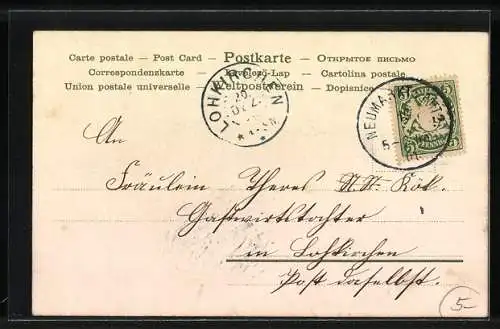 Carte postale — Post Card — Postkarte — Открытое письмо
Correspondenzkarte — Levelező-Lap — Cartolina postale
Union postale universelle — Weltpostverein — Dopisnice
LOHKIRCHEN
NEUMARKT
An
Fräulein Theres
Gastwirtstochter
in Lohkirchen
Post daselbst.
5-